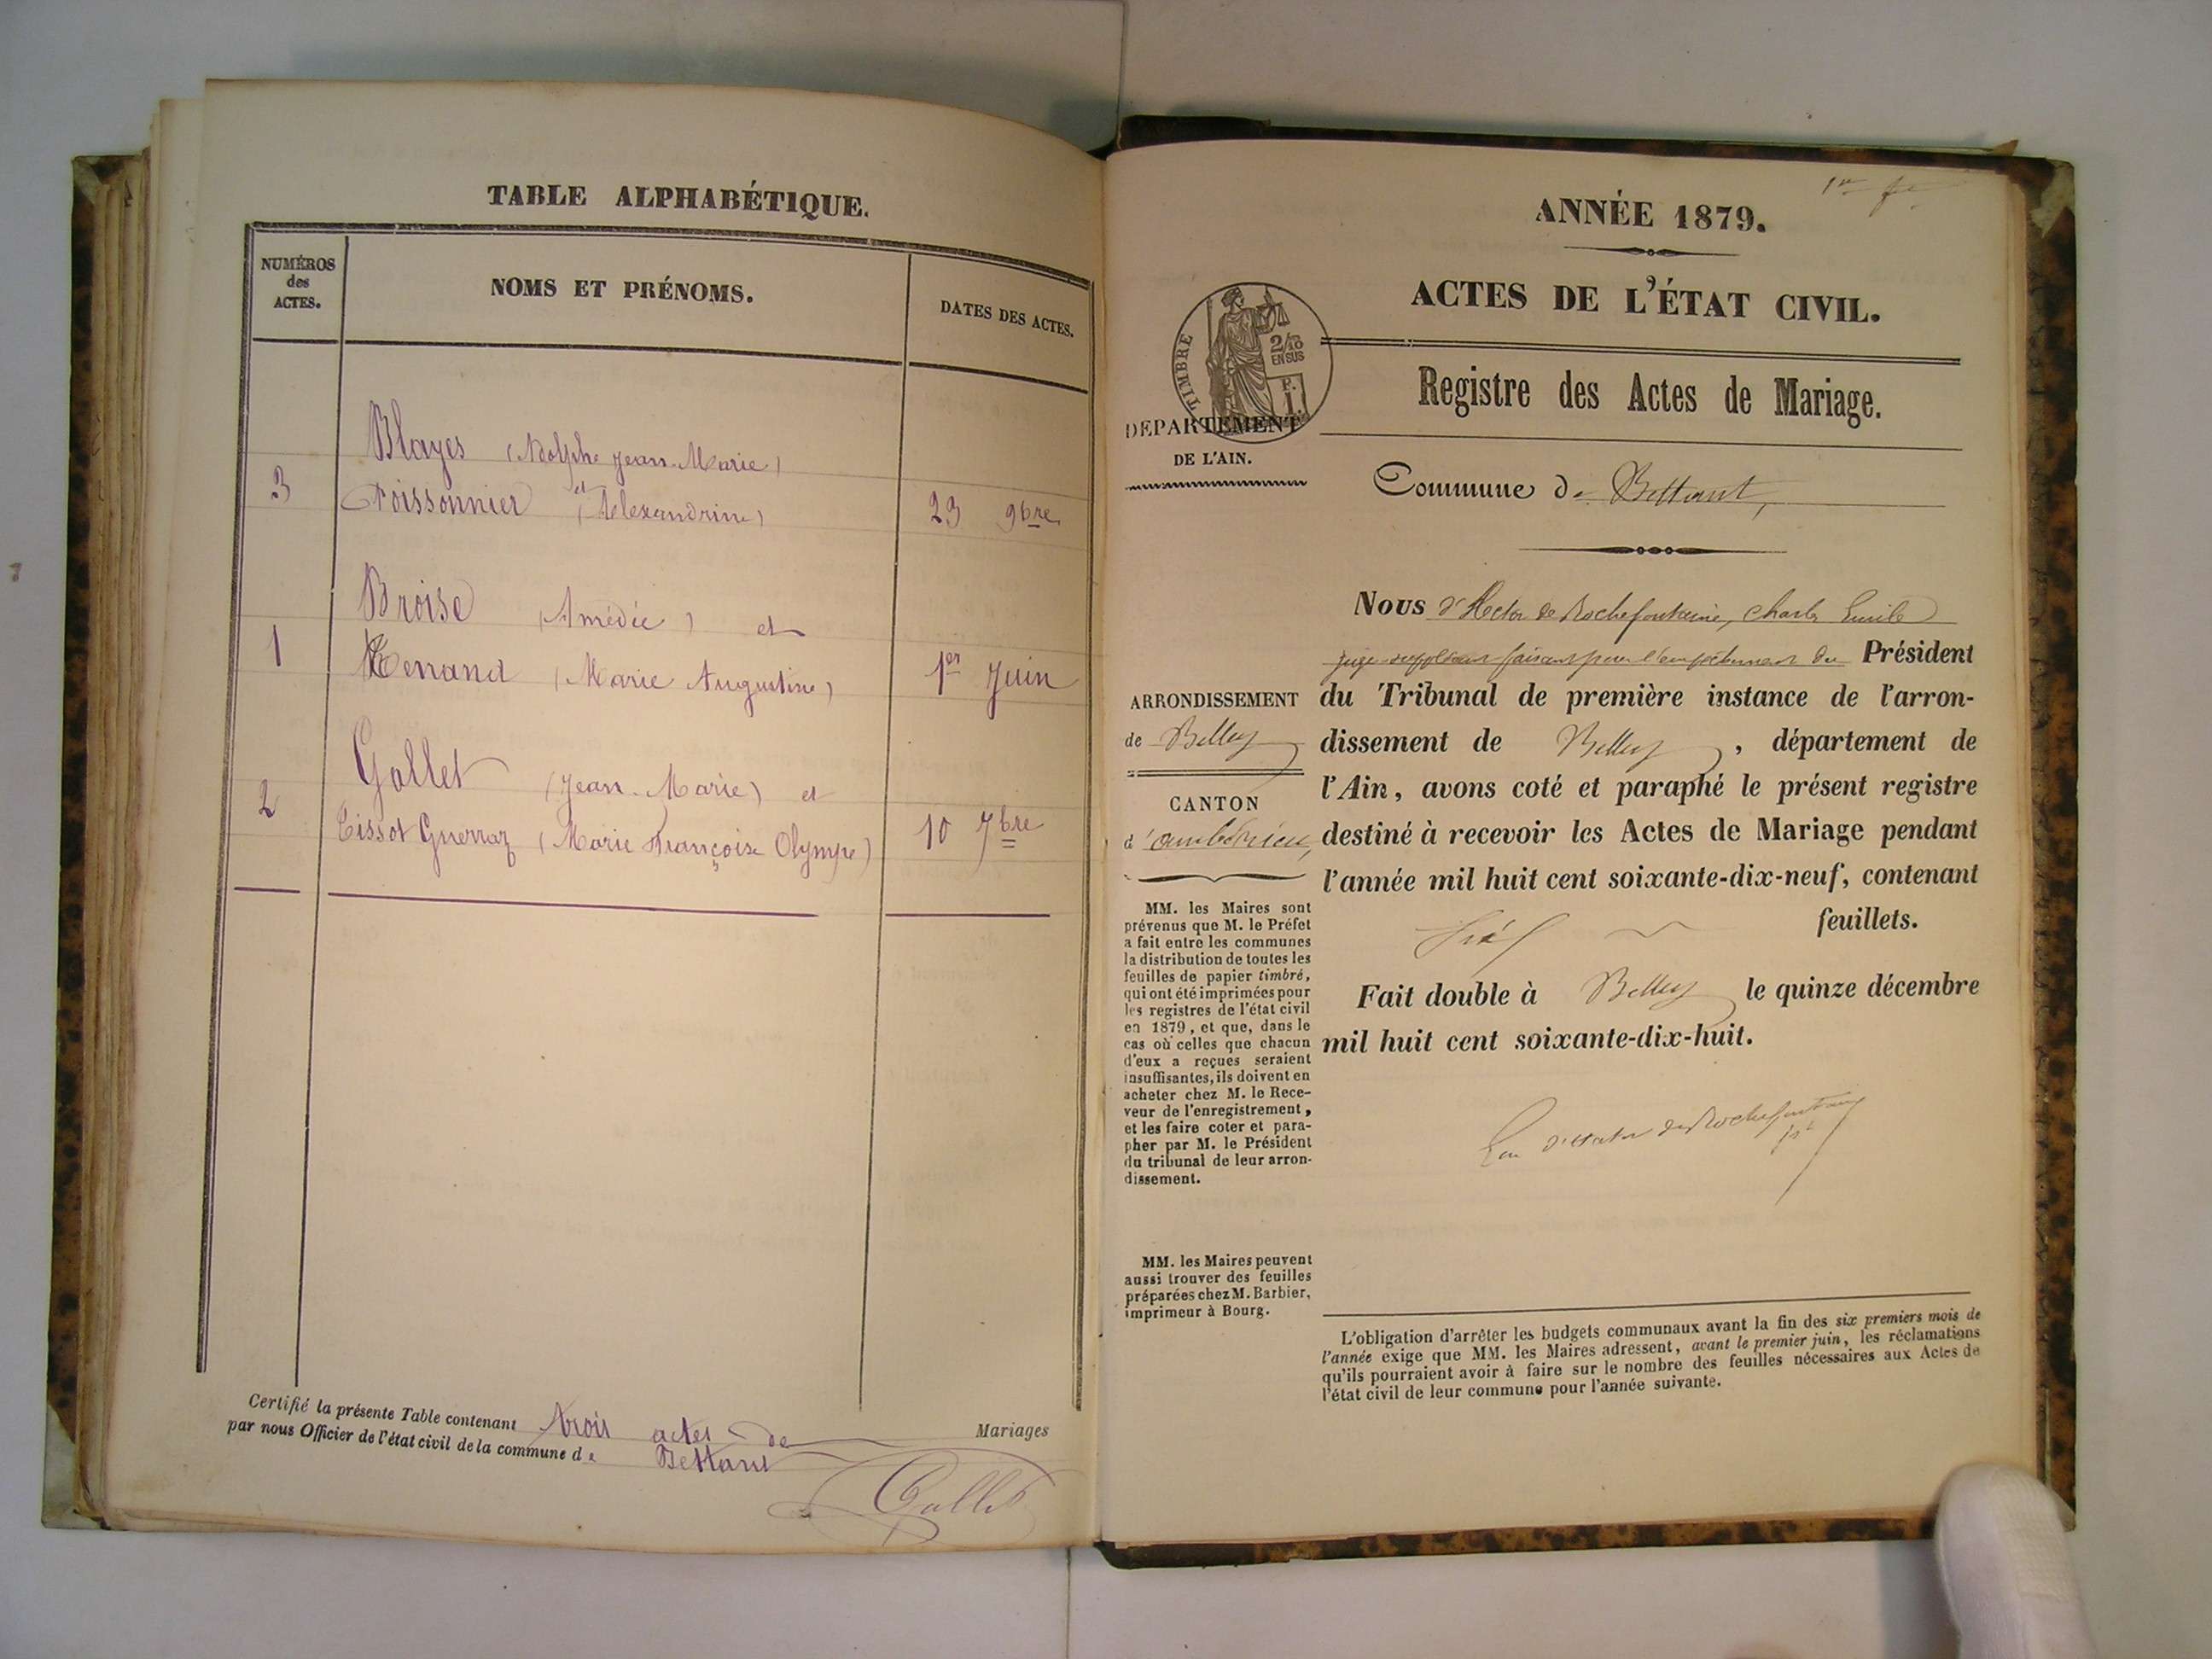 TABLE ALPHABÉTIQUE.
NUMÉROS
des
ACTES.
NOMS ET PRÉNOMS.
DATES DES ACTES.
Blayes (Adolphe Jean-Marie)
et
3 Poissonnier (Alexandrine) 23 9bre
Broise (Amédée) et
1 (Marie Augustine) 1er Juin
Gallet (Jean-Marie) et
2 Tissot Guerraz (Marie Françoise Olympe) 10 7bre
Certifié la présente Table contenant trois actes de Mariages
par nous Officier de l'état civil de la commune de Bettant
Gallet
1er f.
ANNÉE 1879.
ACTES DE L'ÉTAT CIVIL.
TIMBRE
2/10
EN SUS
F.
1
DEPARTEMENT
DE L'AIN.
Registre des Actes de Mariage.
Commune de Bettant,
ARRONDISSEMENT
de Belley
CANTON
d'ambérieu,
MM. les Maires sont
prévenus que M. le Préfet
a fait entre les communes
la distribution de toutes les
feuilles de papier timbré,
qui ont été imprimées pour
les registres de l'état civil
en 1879, et que, dans le
cas où celles que chacun
d'eux a reçues seraient
insuffisantes, ils doivent en
acheter chez M. le Rece-
veur de l'enregistrement,
et les faire coter et para-
pher par M. le Président
du tribunal de leur arron-
dissement.
MM. les Maires peuvent
aussi trouver des feuilles
préparées chez M. Barbier,
imprimeur à Bourg.
Nous d'Hector de Rochefontaine, Charles Emile
juge suppléant faisant pour l'empêchement du Président
du Tribunal de première instance de l'arron-
dissement de Belley, département de
l'Ain, avons coté et paraphé le présent registre
destiné à recevoir les Actes de Mariage pendant
l'année mil huit cent soixante-dix-neuf, contenant
feuillets.
Fait double à Belley le quinze décembre
mil huit cent soixante-dix-huit.
d'Hector de Rochefontaine
L'obligation d'arrêter les budgets communaux avant la fin des six premiers mois de
l'année exige que MM. les Maires adressent, avant le premier juin, les réclamations
qu'ils pourraient avoir à faire sur le nombre des feuilles nécessaires aux Actes de
l'état civil de leur commune pour l'année suivante.